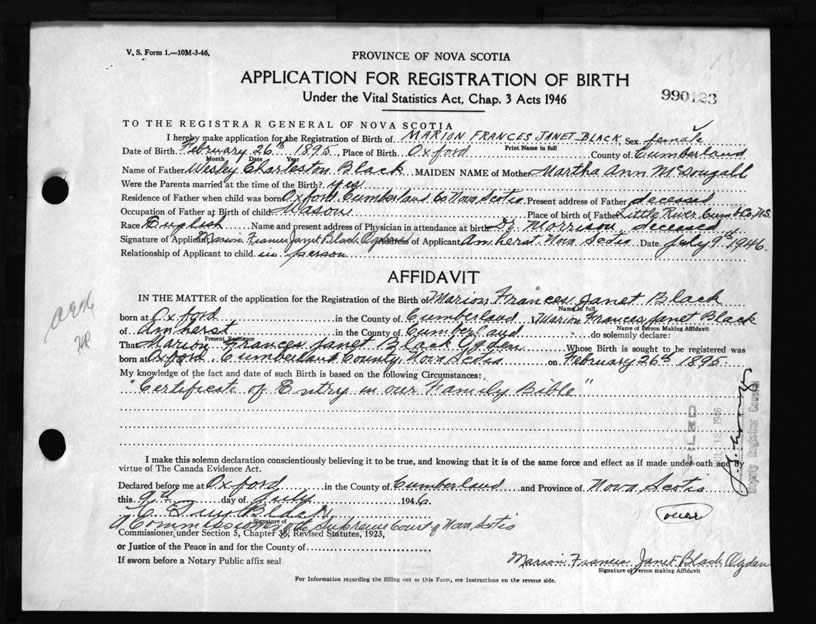 V. S. Form 1.—10M-3-46.
PROVINCE OF NOVA SCOTIA
APPLICATION FOR REGISTRATION OF BIRTH
Under the Vital Statistics Act, Chap. 3 Acts 1946
990123
TO THE REGISTRAR GENERAL OF NOVA SCOTIA
I hereby make application for the Registration of Birth of MARION FRANCES JANET BLACK Sex female
Print Name in full
Date of Birth February 26th 1895 Place of Birth Oxford County of Cumberland
Month Date Year
Name of Father Wesley Charleston Black MAIDEN NAME of Mother Martha Ann McDougall
Were the Parents married at the time of the Birth? yes
Residence of Father when child was born Oxford Cumberland Co Nova Scotia Present address of Father deceased
Occupation of Father at Birth of child Mason Place of birth of Father Little River Cumb Co, N.S.
Race English Name and present address of Physician in attendance at birth Dr Morrison, deceased
Signature of Applicant Marion Frances Janet Black Ogden Address of Applicant Amherst, Nova Scotia Date July 9th 1946.
Relationship of Applicant to child in person
AFFIDAVIT
IN THE MATTER of the application for the Registration of the Birth of Marion Frances Janet Black
Name in full
born at Oxford in the County of Cumberland I, Marion Frances Janet Black
Name of Person Making Affidavit
of Amherst in the County of Cumberland do solemnly declare:
Present Residence
That Marion Frances Janet Black Ogden Whose Birth is sought to be registered was
born at Oxford, Cumberland County, Nova Scotia on February 26th 1895
My knowledge of the fact and date of such Birth is based on the following Circumstances:
"Certificate of Entry in our Family Bible"
I make this solemn declaration conscientiously believing it to be true, and knowing that it is of the same force and effect as if made under oath and by
virtue of The Canada Evidence Act.
Declared before me at Oxford in the County of Cumberland and Province of Nova Scotia
this 9th day of July 1946
Black
Signature of
A Commissioner of the Supreme Court of Nova Scotia
Commissioner, under Section 5, Chapter 38, Revised Statutes, 1923,
or Justice of the Peace in and for the County of
If sworn before a Notary Public affix seal
over
Marion Frances Janet Black Ogden
Signature of Person making Affidavit
For Information regarding the filling out of this Form, see Instructions on the reverse side.
FILED
Deputy Registrar General